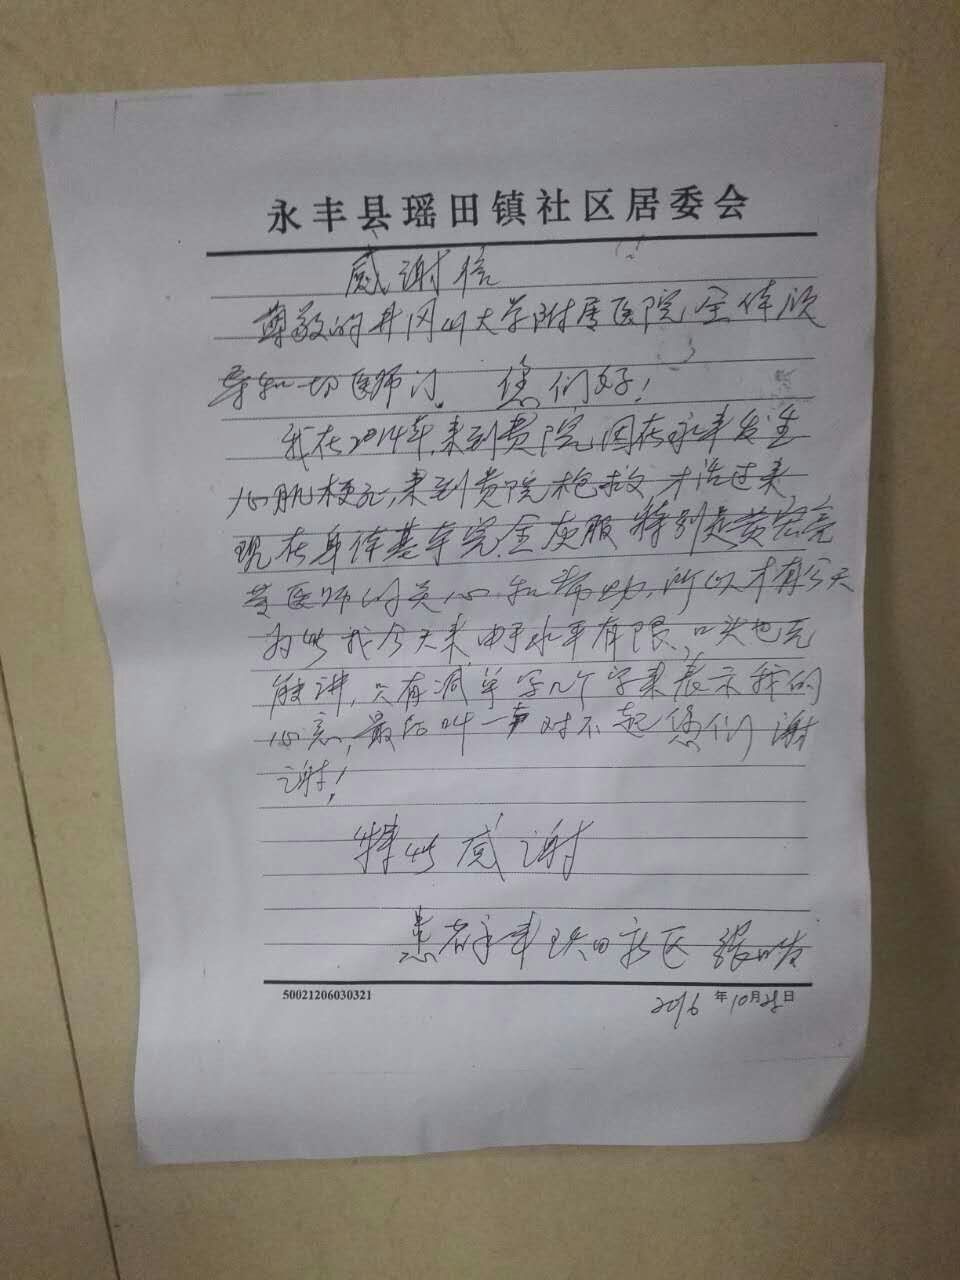 永丰县瑶田镇社区居委会
感谢信
尊敬的井冈山大学附属医院全体领
导和一切医师门。您们好!
我在2014年来到贵院,因在永丰发生
心肌梗死,来到贵院抢救才活过来,
现在身体基本完全灰服特别是黄宏亮
等医师的关心和帮助,所以才有今天
为此我今天来由于水平有限,口头也无
能讲,只有减单写几个字来表示我的
心意,最后叫一声对不起您们谢
谢!
特此感谢
患者永丰瑶田社区 张
50021206030321
2016年10月28日